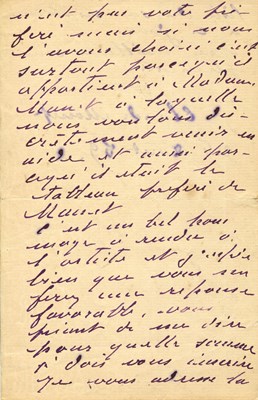 n'est pas votre pré
féré mais si nous
l'avons choisi c'est
surtout parcequ'il
appartient à Madame
Manet à laquelle
nous voulons dis-
crètement venir en
aide et aussi par-
cequ'il était le
tableau préféré de
Manet
C'est un bel hom
mage à rendre à
l'artiste et j'espère
bien que vous me
ferez une réponse
favorable, vous
priant de me dire
pour quelle somme
je dois vous inscrire
Je vous adresse la